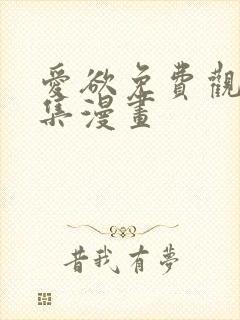 愛欲免費觀
集漫畫
昔我有夢